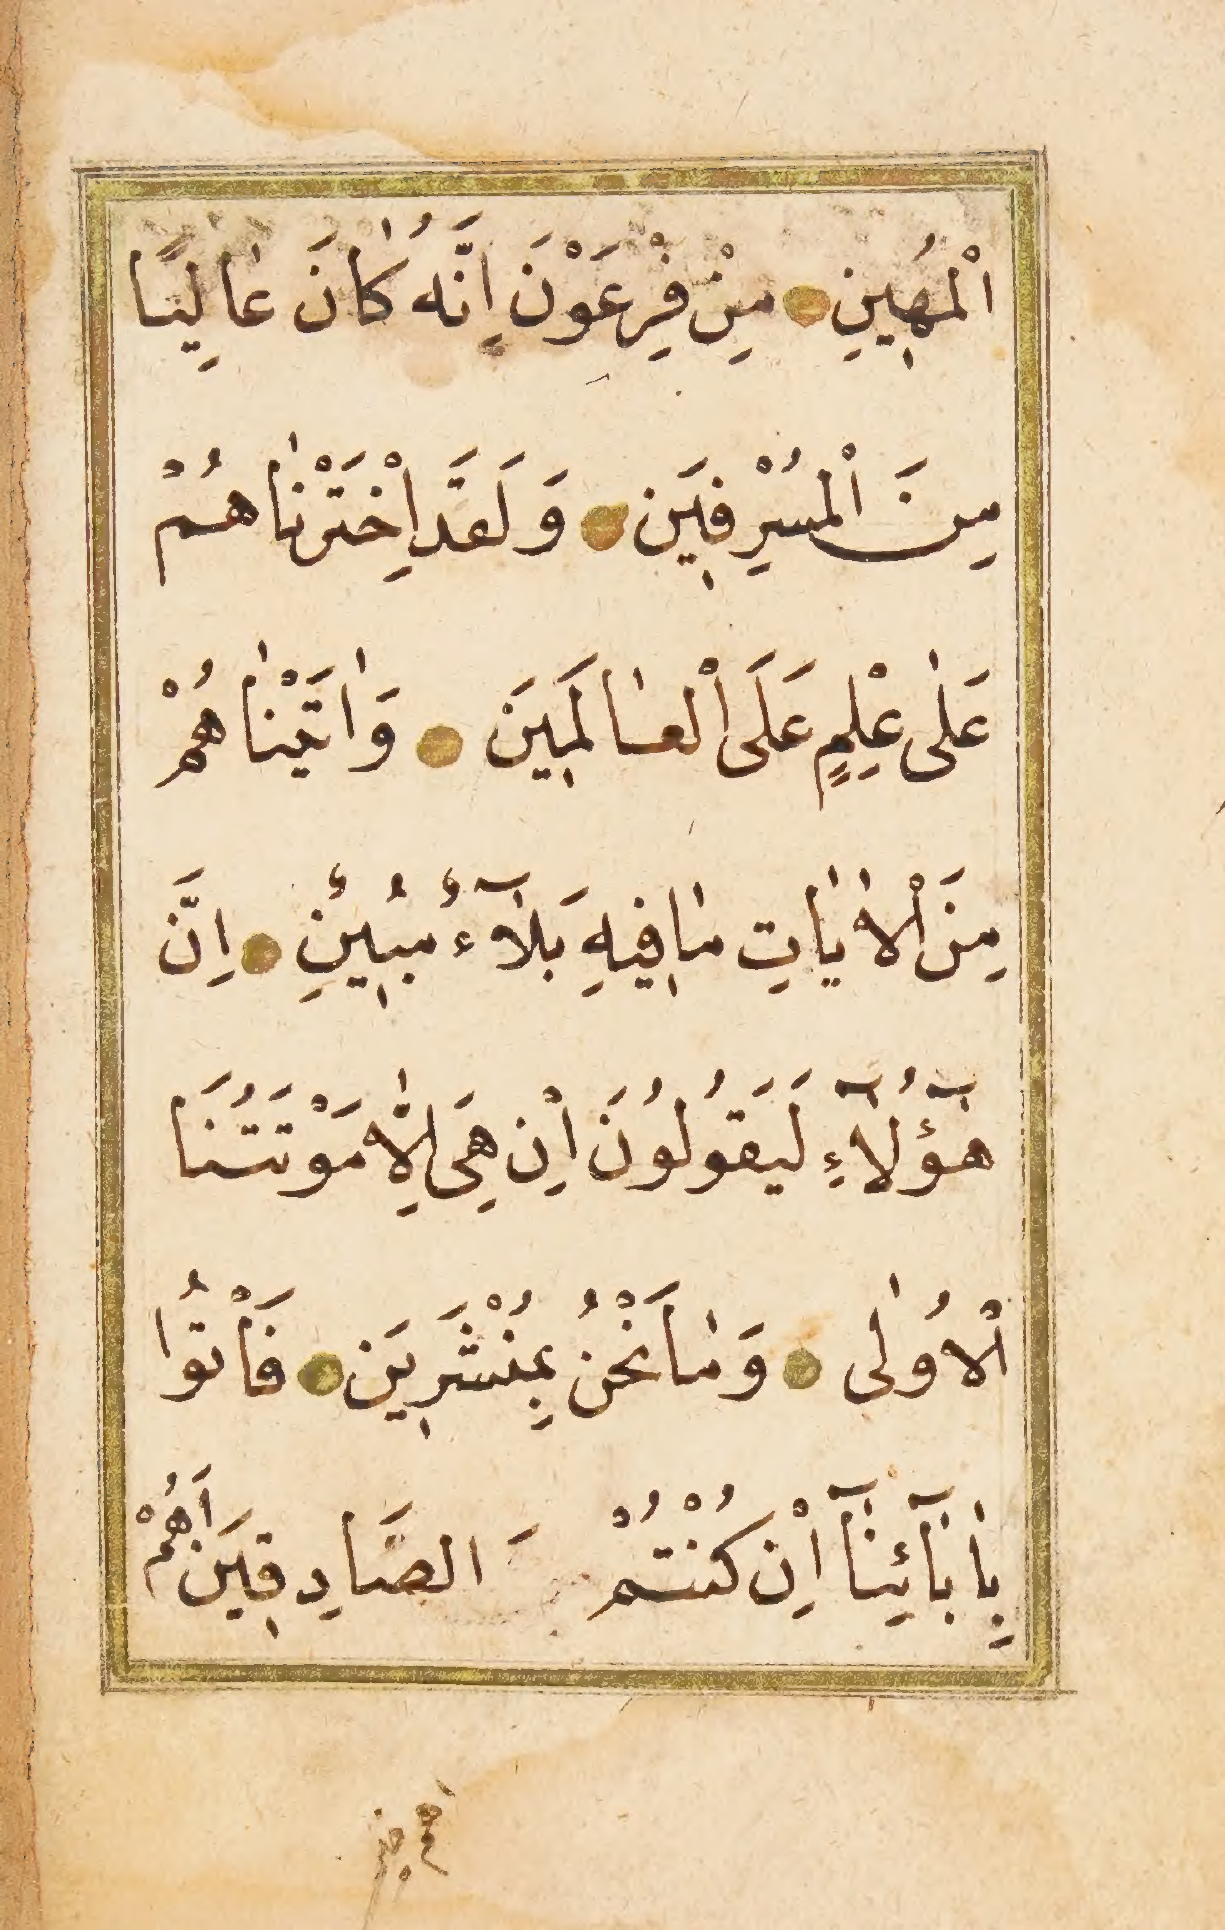 الْمُهٖينِ مِنْ فِرْعَوْنَ اِنَّهُ كَانَ عَالِيًا
مِنَ الْمُسْرِفٖينَ وَلَقَدِ اخْتَرْنَاهُمْ
عَلٰى عِلْمٍ عَلَى الْعَالَمٖينَ وَاٰتَيْنَاهُمْ
مِنَ الْاٰيَاتِ مَا فٖيهِ بَلَآءٌ مُبٖينٌ اِنَّ
هٰٓؤُلَآءِ لَيَقُولُونَ اِنْ هِيَ اِلَّا مَوْتَتُنَا
الْاُولٰى وَمَا نَحْنُ بِمُنْشَرٖينَ فَأْتُوا
بِاٰبَآئِنَآ اِنْ كُنْتُمْ الصَّادِقٖينَ اَهُمْ
اهم خير